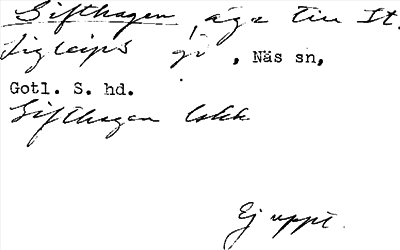 Gifthagen, äga till St.
Sigleips gd, Näs sn,
Gotl. S. hd.
Gifthagen lokk
Ej uppt.